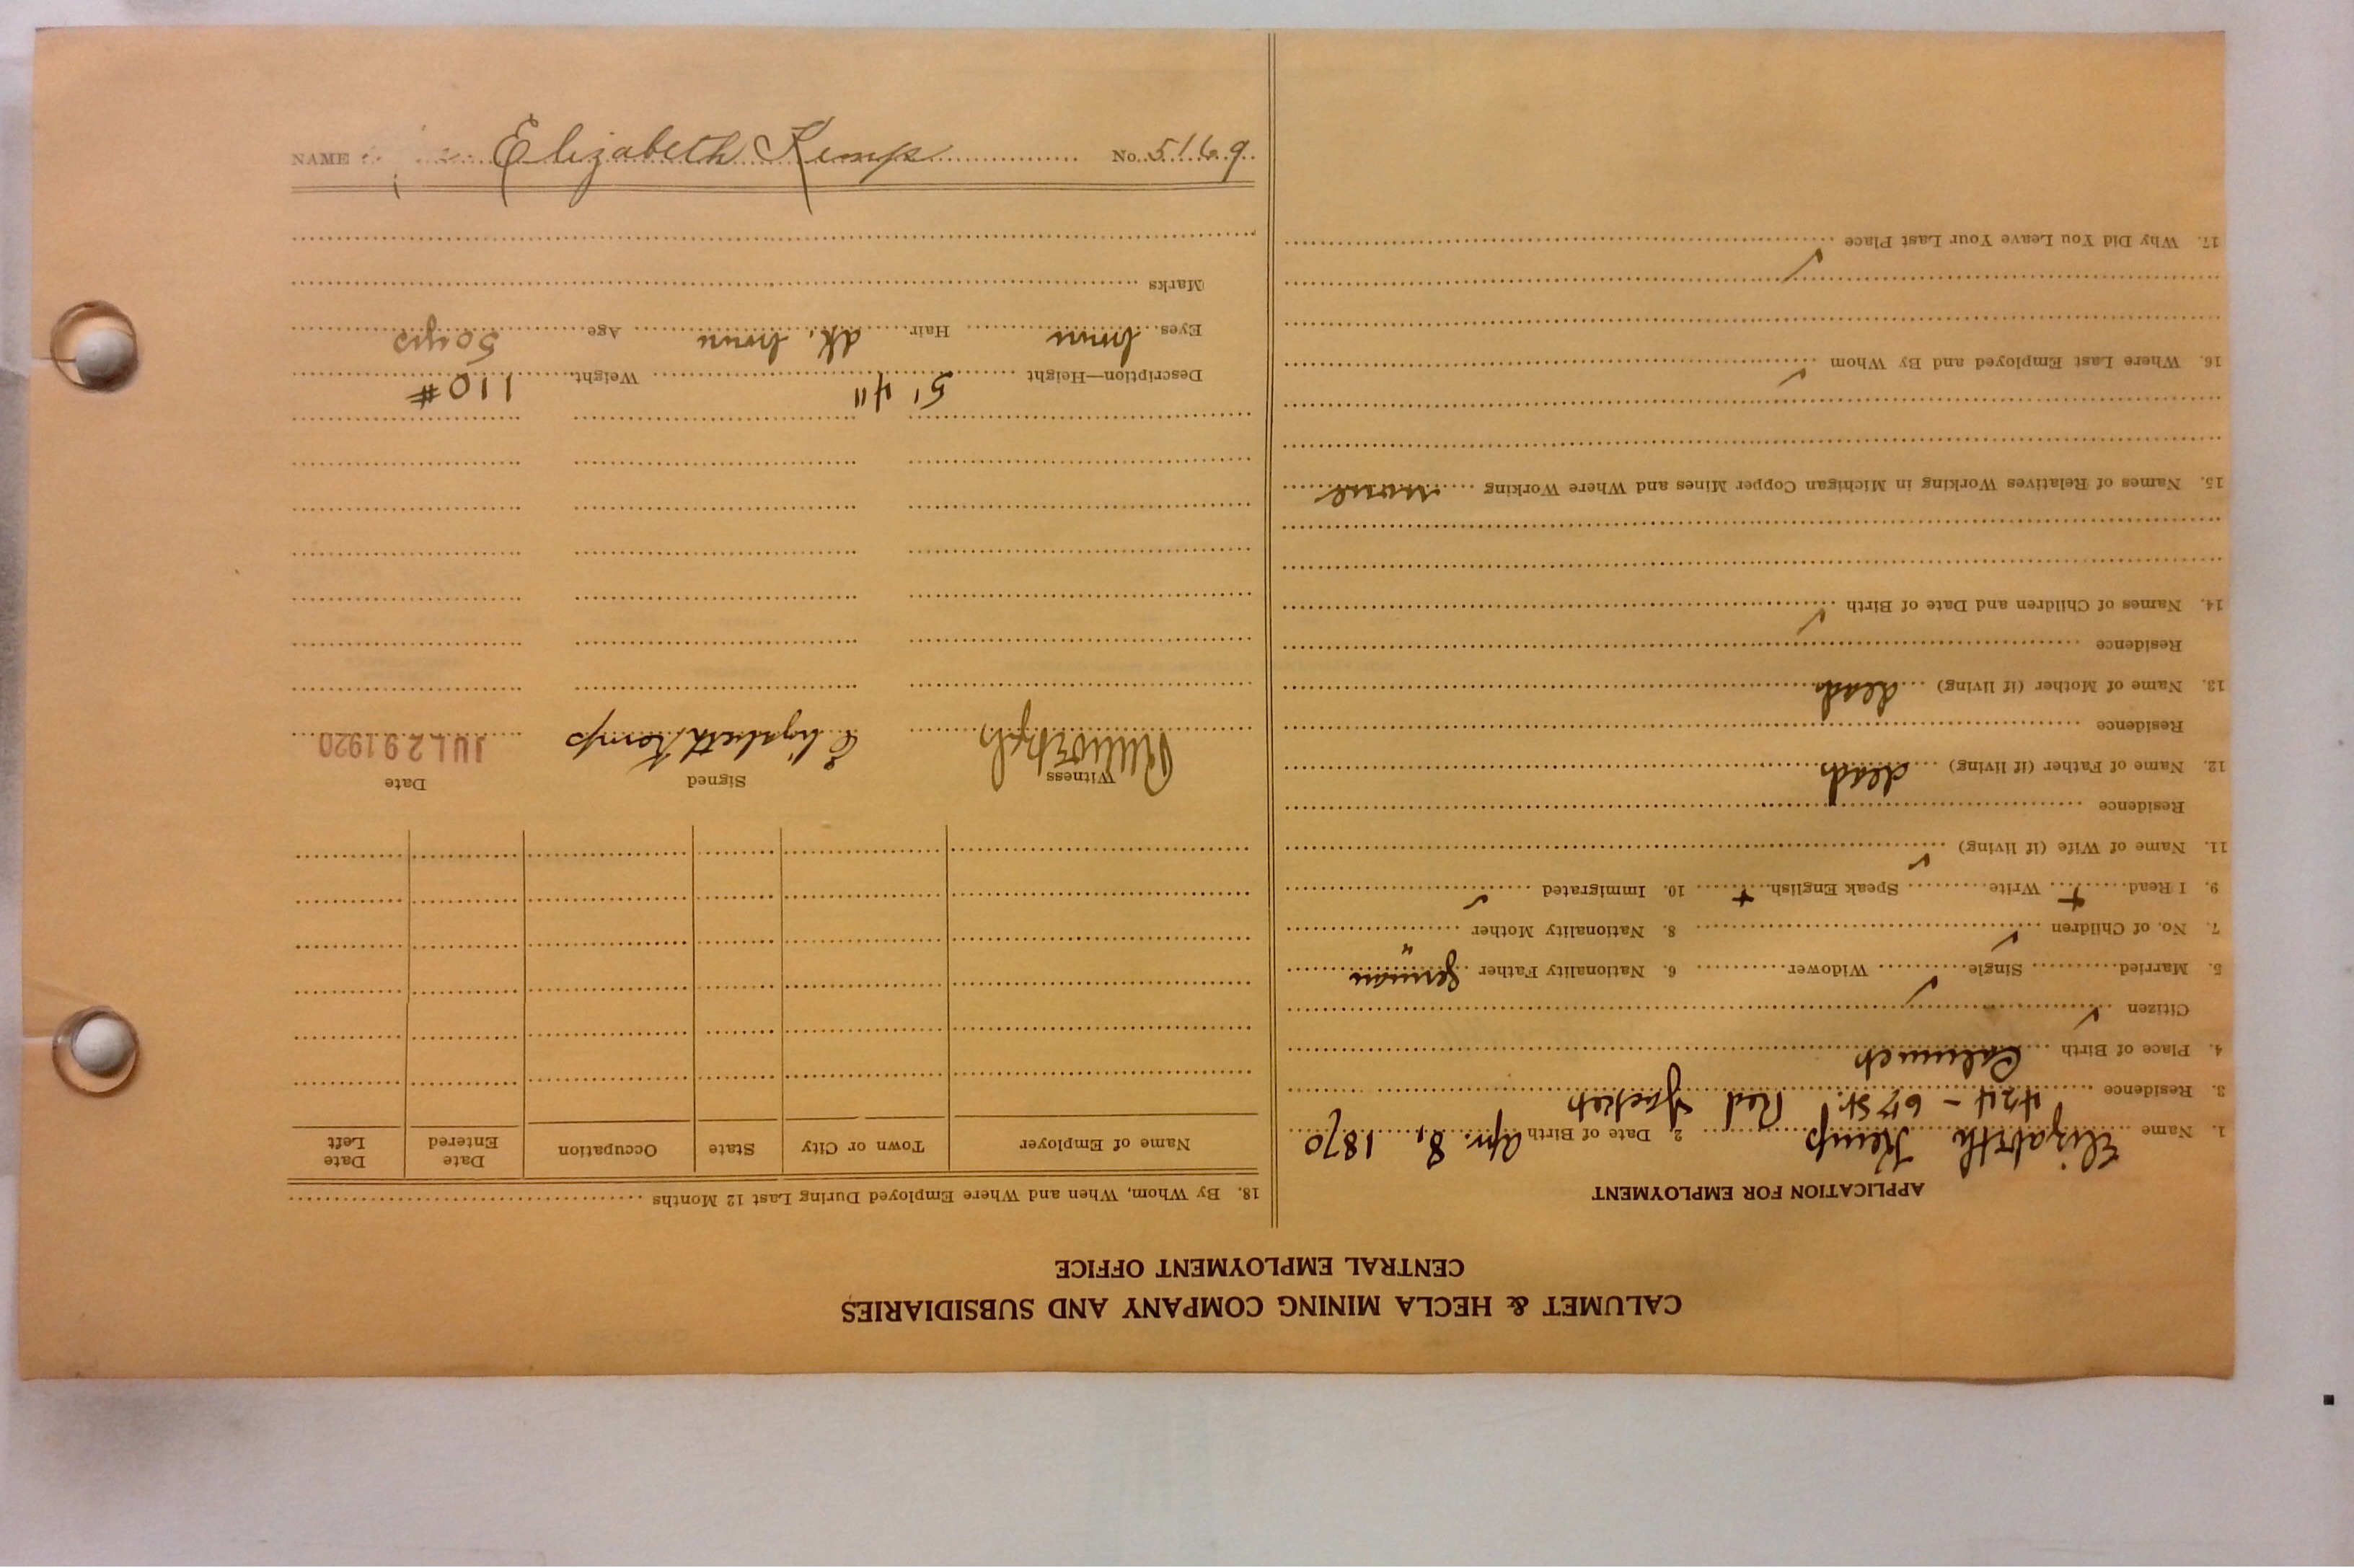 CALUMET & HECLA MINING COMPANY AND SUBSIDIARIES
CENTRAL EMPLOYMENT OFFICE
APPLICATION FOR EMPLOYMENT
1. Name Elizabeth Kemp 2. Date of Birth Apr. 8, 1870
3. Residence 424 - 6th St. Red Jacket
4. Place of Birth Calumet
Citizen ✓
5. Married Single ✓ Widower 6. Nationality Father German
7. No. of Children ✓ 8. Nationality Mother "
9. I Read + Write Speak English + 10. Immigrated ✓
11. Name of Wife (if living) ✓
Residence
12. Name of Father (if living) dead
Residence
13. Name of Mother (if living) dead
Residence
14. Names of Children and Date of Birth ✓
15. Names of Relatives Working in Michigan Copper Mines and Where Working none
16. Where Last Employed and By Whom ✓
17. Why Did You Leave Your Last Place ✓
18. By Whom, When and Where Employed During Last 12 Months
Name of Employer Town or City State Occupation Date Entered Date Left
Witness Signed Date
Elizabeth Kemp JUL 29 1920
Description—Height 5' 4" Weight 110#
Eyes brown Hair dk. brown Age 50 yrs
Marks
NAME Elizabeth Kemp No. 5169